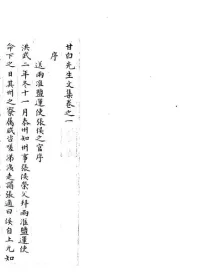 甘白先生文集卷之一
序
送兩淮鹽運使張侯之官序
洪武二年冬十一月泰州知州事張侯榮父拜兩淮鹽運使
命下之日其州之寮屬咸咨嗟涕洟走謂張適曰侯自上元知